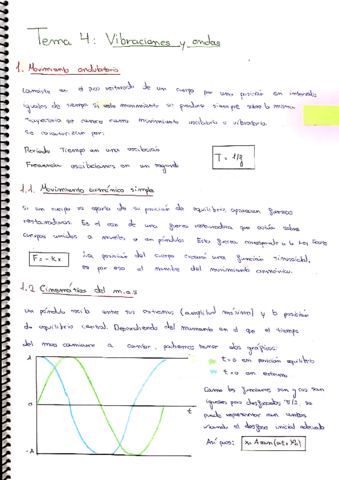 Tema 4: Vibraciones y ondas
1. Movimiento ondulatorio
Consiste en el paso reiterado de un cuerpo por una posición en intervalos
iguales de tiempo si este movimiento se produce siempre sobre la misma
trayectoria se nombra como movimiento oscilatorio o vibratorio.
Se caracterizan por:
Periodo Tiempo en una oscilación
Frecuencia oscilaciones en un segundo
T = 1/f
1.1. Movimiento armónico simple
Si un cuerpo se aparta de su posición de equilibrio aparecen fuerzas
restauradoras. Es el caso de una fuerza restauradora que actúa sobre
cuerpos unidos a muelles o en péndulos. Esta fuerza corresponde a la ley Hooke
F = -kx
La posición del cuerpo creará una función sinusoidal,
es por eso el nombre del movimiento armónico.
1.2 Cinemática del m.a.s
Un péndulo oscila entre sus extremos (amplitud máxima) y la posición
de equilibrio central. Dependiendo del momento en el que el tiempo
del mas comience a contar, podremos tener dos gráficas:
A
0
-A
t
t=0 en posición equilibrio
t=0 en extremo
Como las funciones sen y cos son
iguales pero desfasadas π/2, se
puede representar con ambas
usando el desfase inicial adecuado
Así pues: